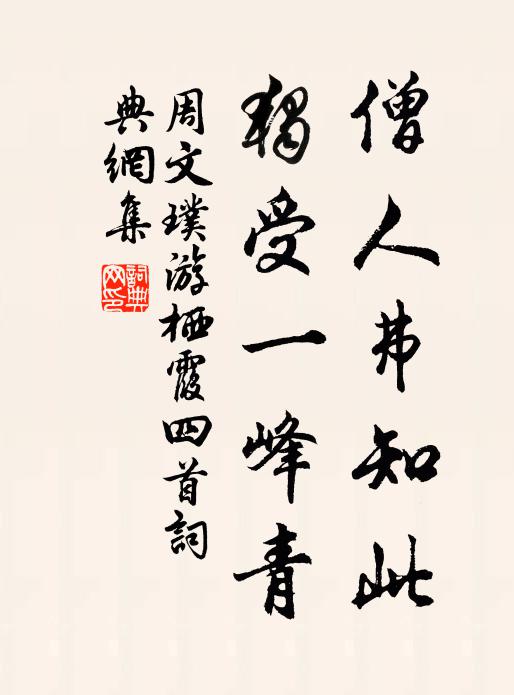 僧人弗知此
獨受一峰青
周文璞游栖霞四首詞
典網集
詞典
网印